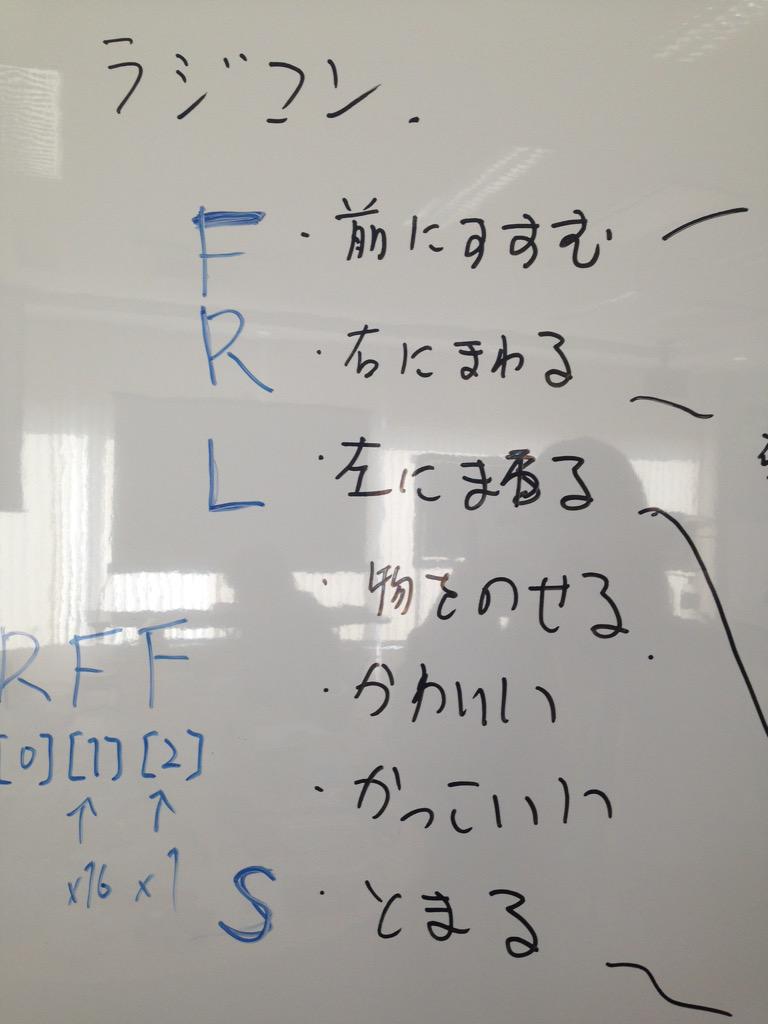 ラジコン.
F ・前にすすむ
R ・右にまわる
L ・左にまわる
・物をのせる.
・かわいい
RFF
[0][1][2]
・かっこいい
↑ ↑
x16 x1
S ・とまる